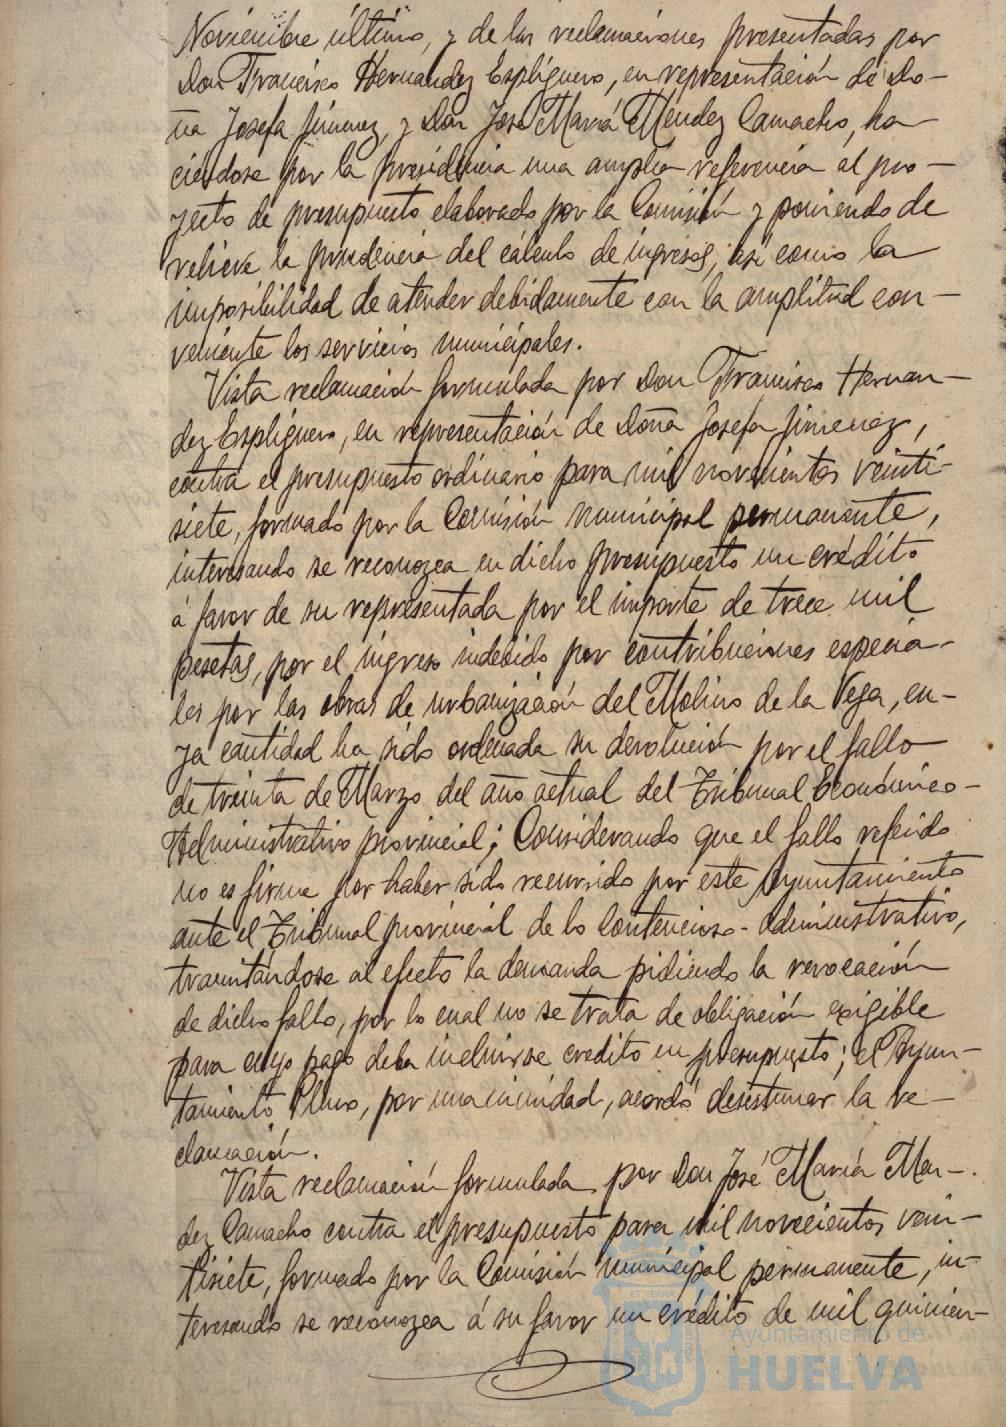 Noviembre último, y de las reclamaciones presentadas por
Don Francisco Hernandez Esplíguero, en representación de Do-
ña Josefa Jiménez, y Don José María Méndez Camacho, ha-
ciéndose por la presidencia una amplia referencia al pro-
yecto de presupuesto elaborado por la Comisión y poniendo de
relieve la prudencia del cálculo de ingresos, así como la
imposibilidad de atender debidamente con la amplitud con-
veniente los servicios municipales.
Vista reclamación formulada por Don Francisco Hernan-
dez Esplíguero, en representación de Doña Josefa Jimenez,
contra el presupuesto ordinario para mil novecientos veinti-
siete, formado por la Comisión municipal permanente,
interesando se reconozca en dicho presupuesto un crédito
á favor de su representada por el importe de trece mil
pesetas, por el ingreso indebido por contribuciones especia-
les por las obras de urbanización del Molino de la Vega, cu-
ya cantidad ha sido ordenada su devolución por el fallo
de treinta de Marzo del año actual del Tribunal Económico-
Administrativo provincial; Considerando que el fallo referido
no es firme por haber sido recurrido por este Ayuntamiento
ante el Tribunal provincial de lo Contencioso-administrativo,
tramitándose al efecto la demanda pidiendo la revocación
de dicho fallo, por lo cual no se trata de obligación exigible
para cuyo pago deba incluirse crédito en presupuesto; el Ayun-
tamiento Pleno, por unanimidad, acordó desestimar la re-
clamación.
Vista reclamación formulada por Don José María Men-
dez Camacho contra el presupuesto para mil novecientos vein-
tisiete, formado por la Comisión municipal permanente, in-
teresando se reconozca á su favor un crédito de mil quinien-
Ayuntamiento de
HUELVA